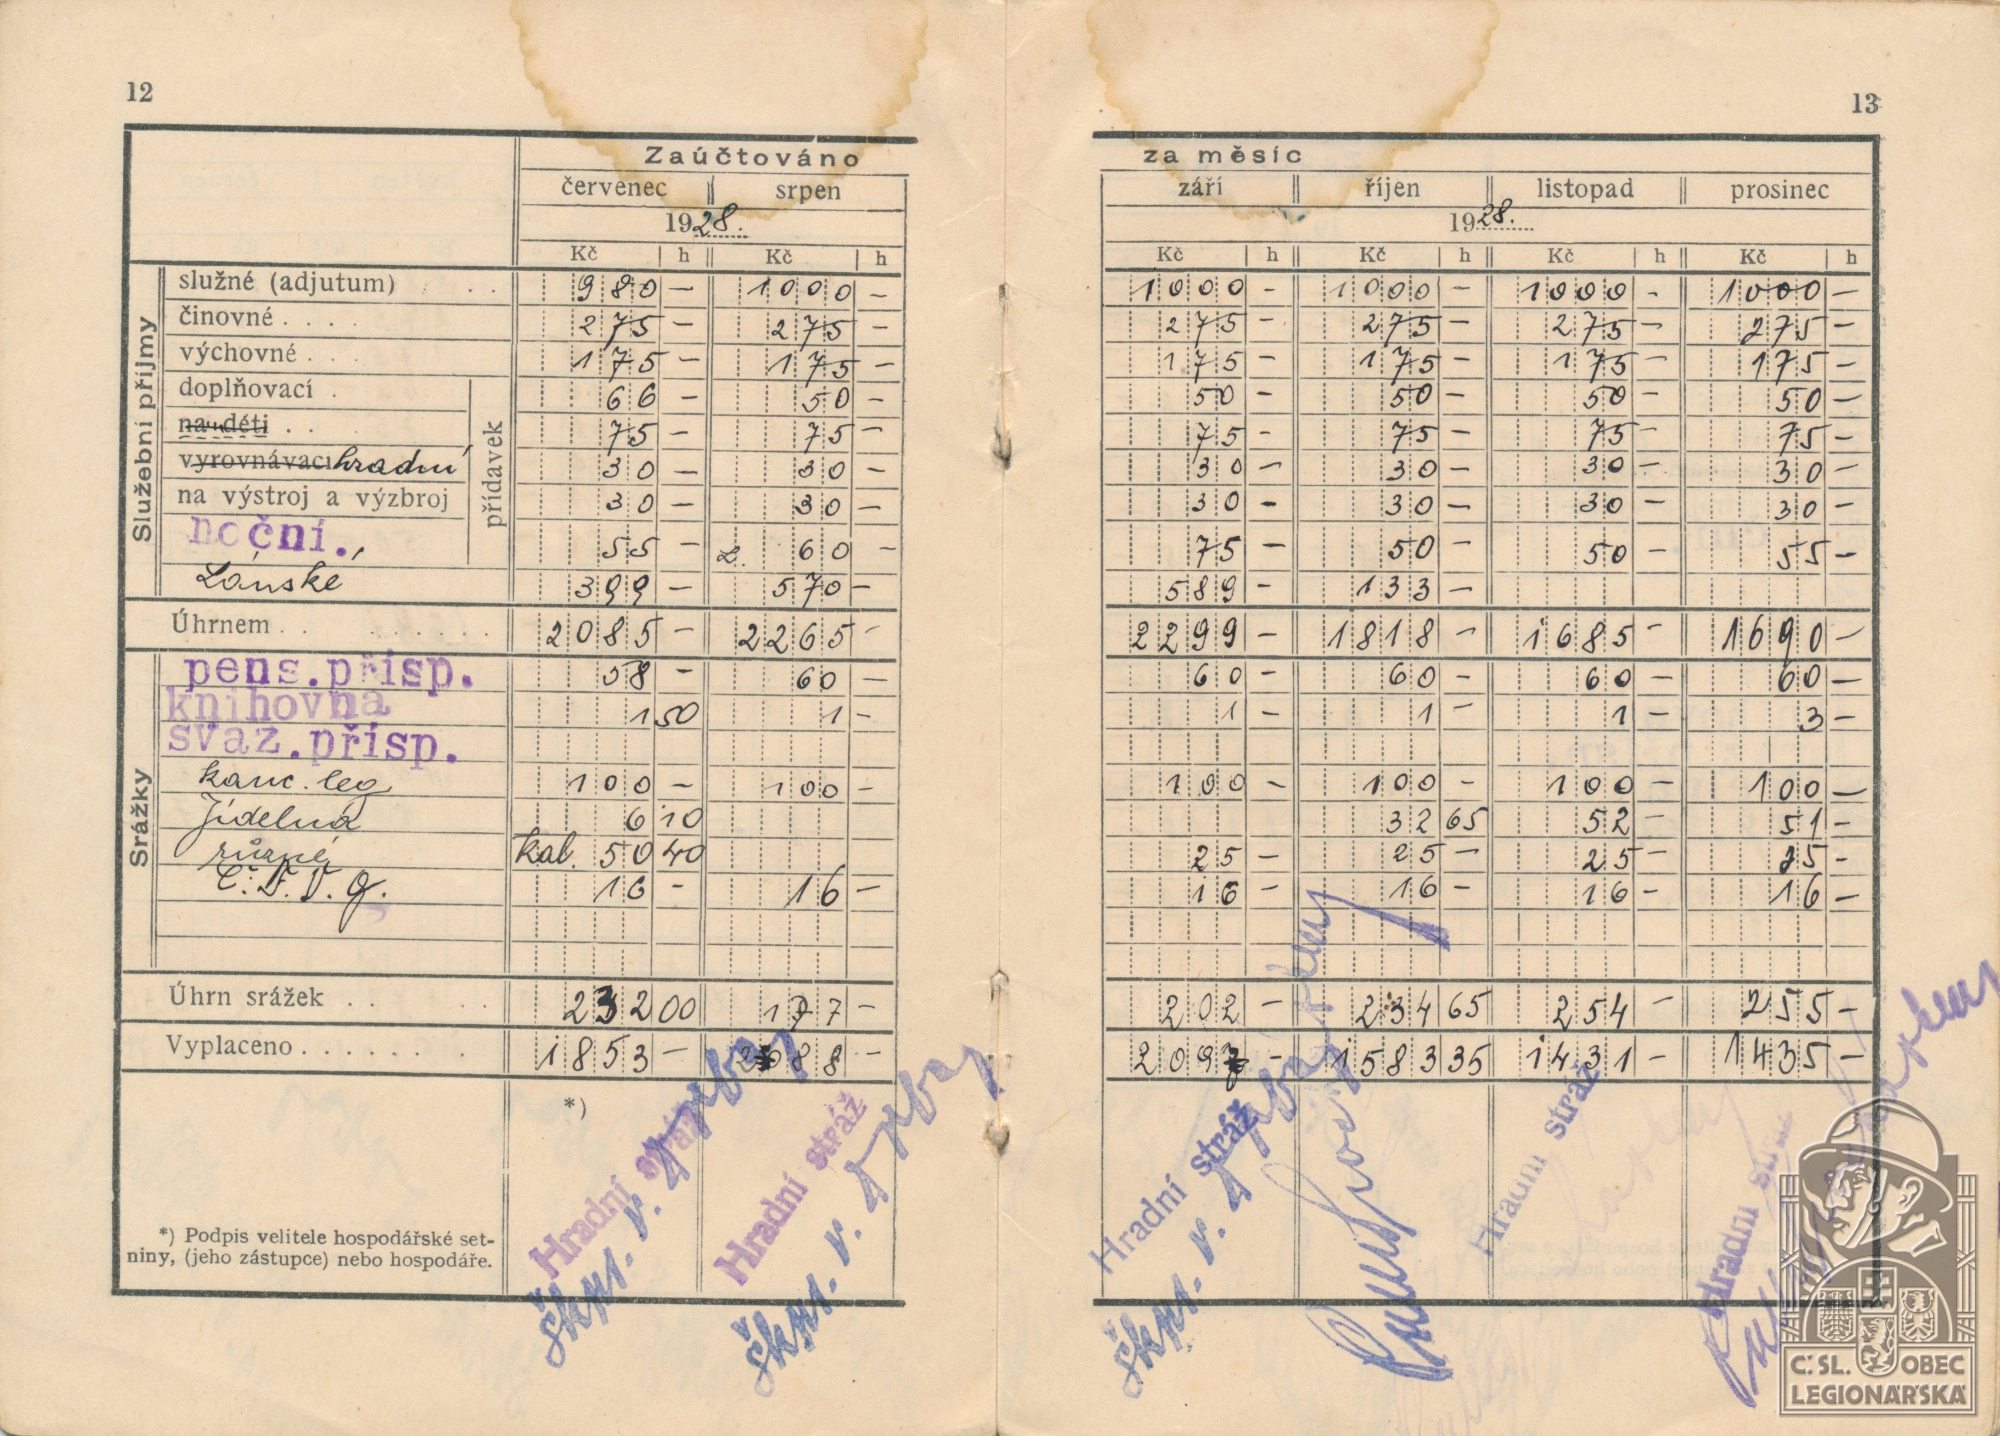 12
Zaúčtováno
červenec srpen
1928.
Kč h Kč h
Služební příjmy
služné (adjutum) . . . . 980 — 1000 —
činovné . . . . 275 — 275 —
výchovné . . . 175 — 175 —
doplňovací . 66 — 50 —
na děti . . . 75 — 75 —
vyrovnávací hradní 30 — 30 —
na výstroj a výzbroj 30 — 30 —
přídavek
noční. 55 — 60 —
Lánské 399 — 570 —
Úhrnem . . . . . . . . 2085 — 2265 —
Srážky
pens.přísp. 58 — 60 —
knihovna 1 50 1 —
svaz.přísp.
kanc. leg 100 — 100 —
Jídelna 6 10
různé kal. 50 40
Č. D. V. J. 16 — 16 —
Úhrn srážek . . . 232 00 177 —
Vyplaceno . . . . . . . 1853 — 2088 —
*)
*) Podpis velitele hospodářské set-
niny, (jeho zástupce) nebo hospodáře.
Hradní stráž
škpt. v.
Hradní stráž
škpt. v.
13
za měsíc
září říjen listopad prosinec
1928.
Kč h Kč h Kč h Kč h
1000 — 1000 — 1000 — 1000 —
275 — 275 — 275 — 275 —
175 — 175 — 175 — 175 —
50 — 50 — 50 — 50 —
75 — 75 — 75 — 75 —
30 — 30 — 30 — 30 —
30 — 30 — 30 — 30 —
75 — 50 — 50 — 55 —
589 — 133 —
2299 — 1818 — 1685 — 1690 —
60 — 60 — 60 — 60 —
1 — 1 — 1 — 3 —
100 — 100 — 100 — 100 —
32 65 52 — 51 —
25 — 25 — 25 — 25 —
16 — 16 — 16 — 16 —
202 — 234 65 254 — 255 —
2097 — 1583 35 1431 — 1435 —
Hradní stráž
škpt. v.
Hradní stráž
Hradní stráž
Č. SL. OBEC
LEGIONÁŘSKÁ